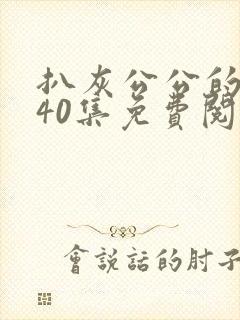 扒灰公公的
40集免費閱
會說話的肘子